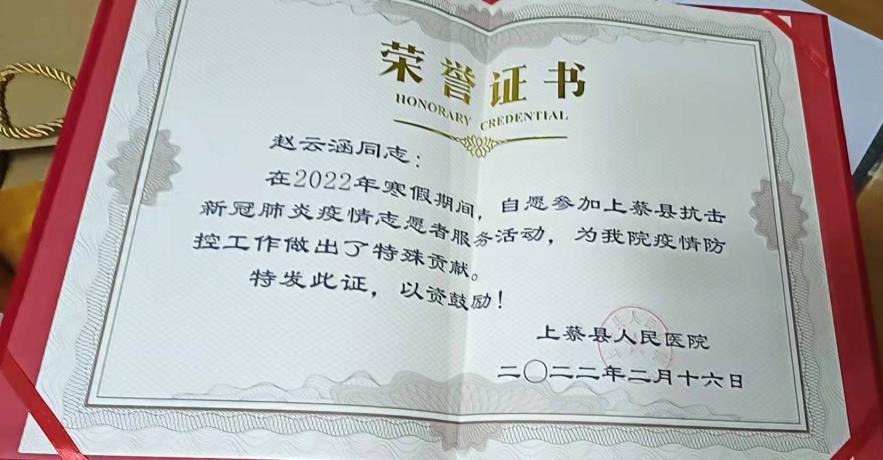 荣誉证书
HONORARY CREDENTIAL
赵云涵同志：
在2022年寒假期间，自愿参加上蔡县抗击
新冠肺炎疫情志愿者服务活动，为我院疫情防
控工作做出了特殊贡献。
特发此证，以资鼓励！
上蔡县人民医院
二〇二二年二月十六日